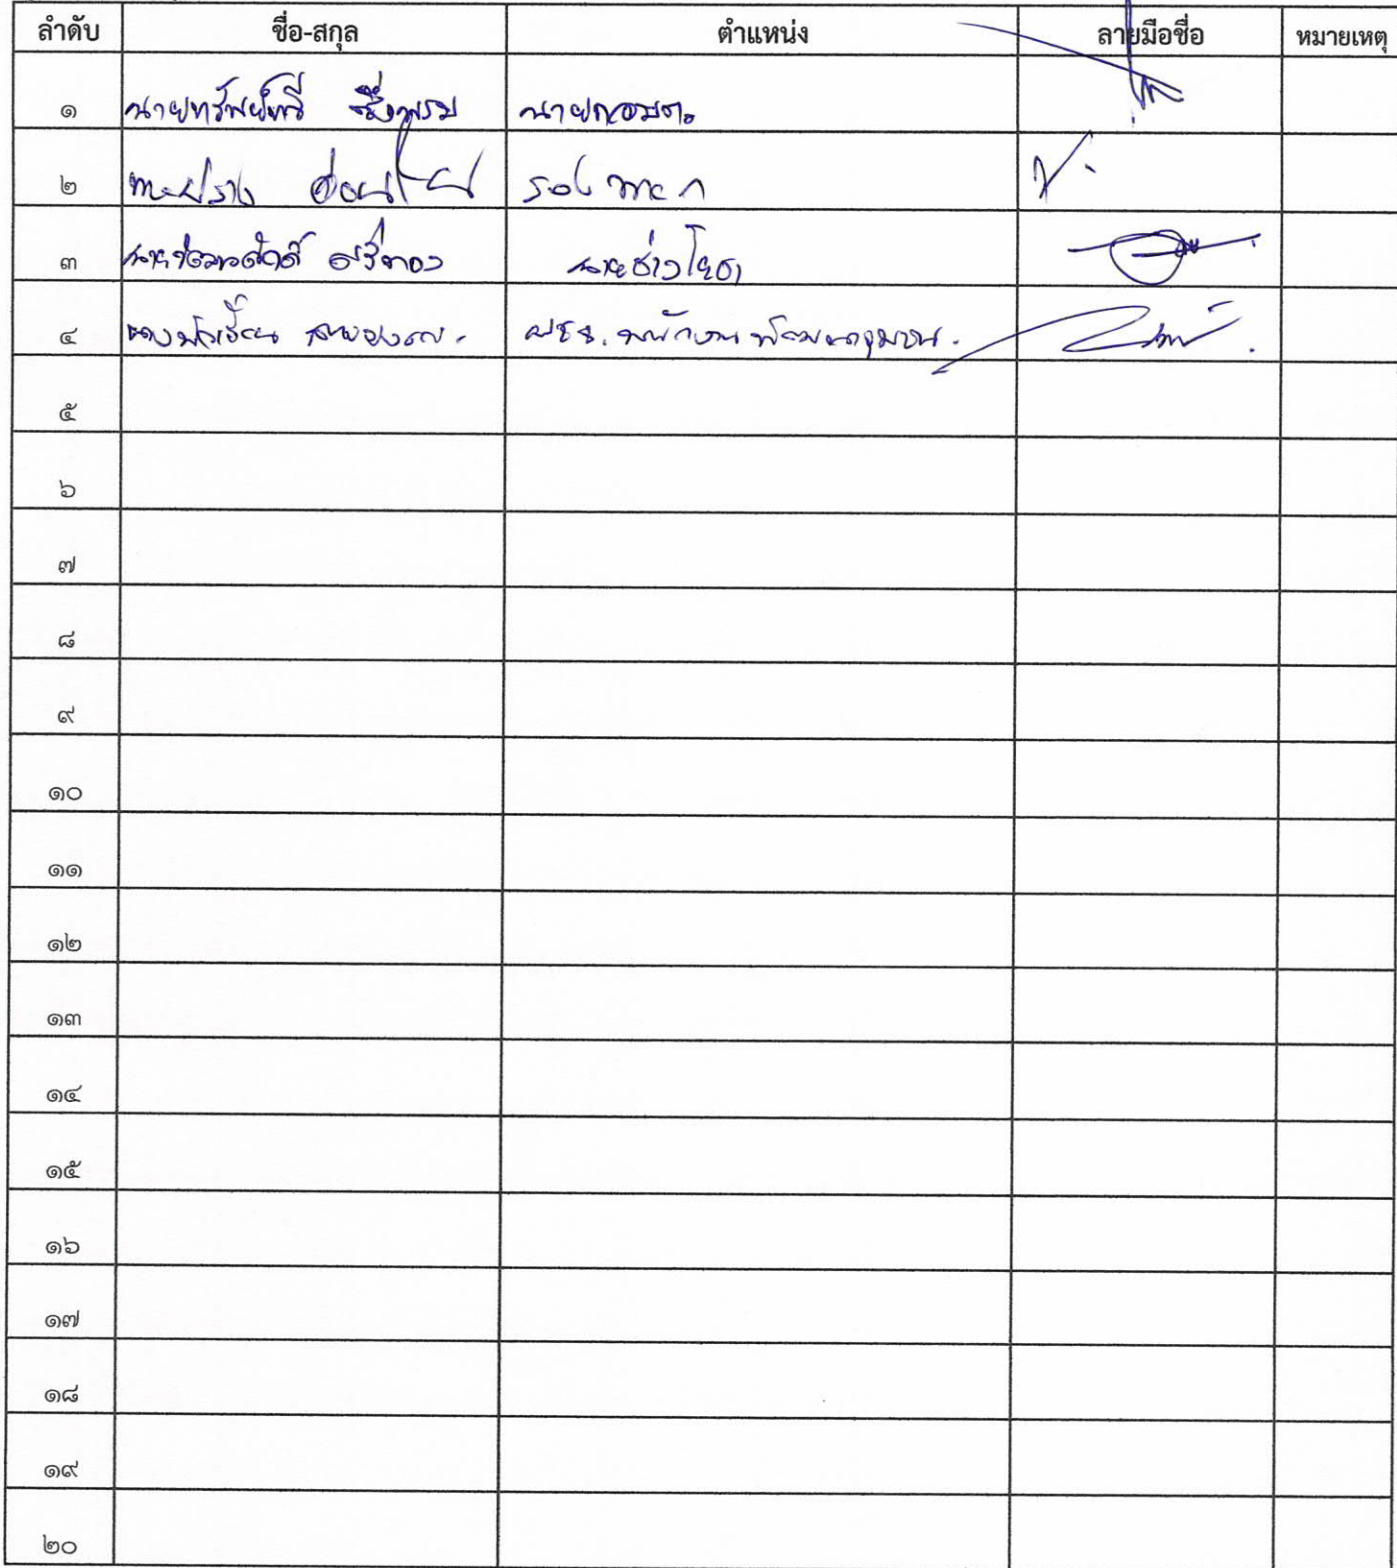 ลำดับ ชื่อ-สกุล ตำแหน่ง ลายมือชื่อ หมายเหตุ
๑ นายทรัพย์ทวี นายกอบต.
๒ รองนายก
๓ ศรีทอง นายช่างโยธา
๔ นาง ผช.จ.พนักงานพัฒนาชุมชน.
๕
๖
๗
๘
๙
๑๐
๑๑
๑๒
๑๓
๑๔
๑๕
๑๖
๑๗
๑๘
๑๙
๒๐